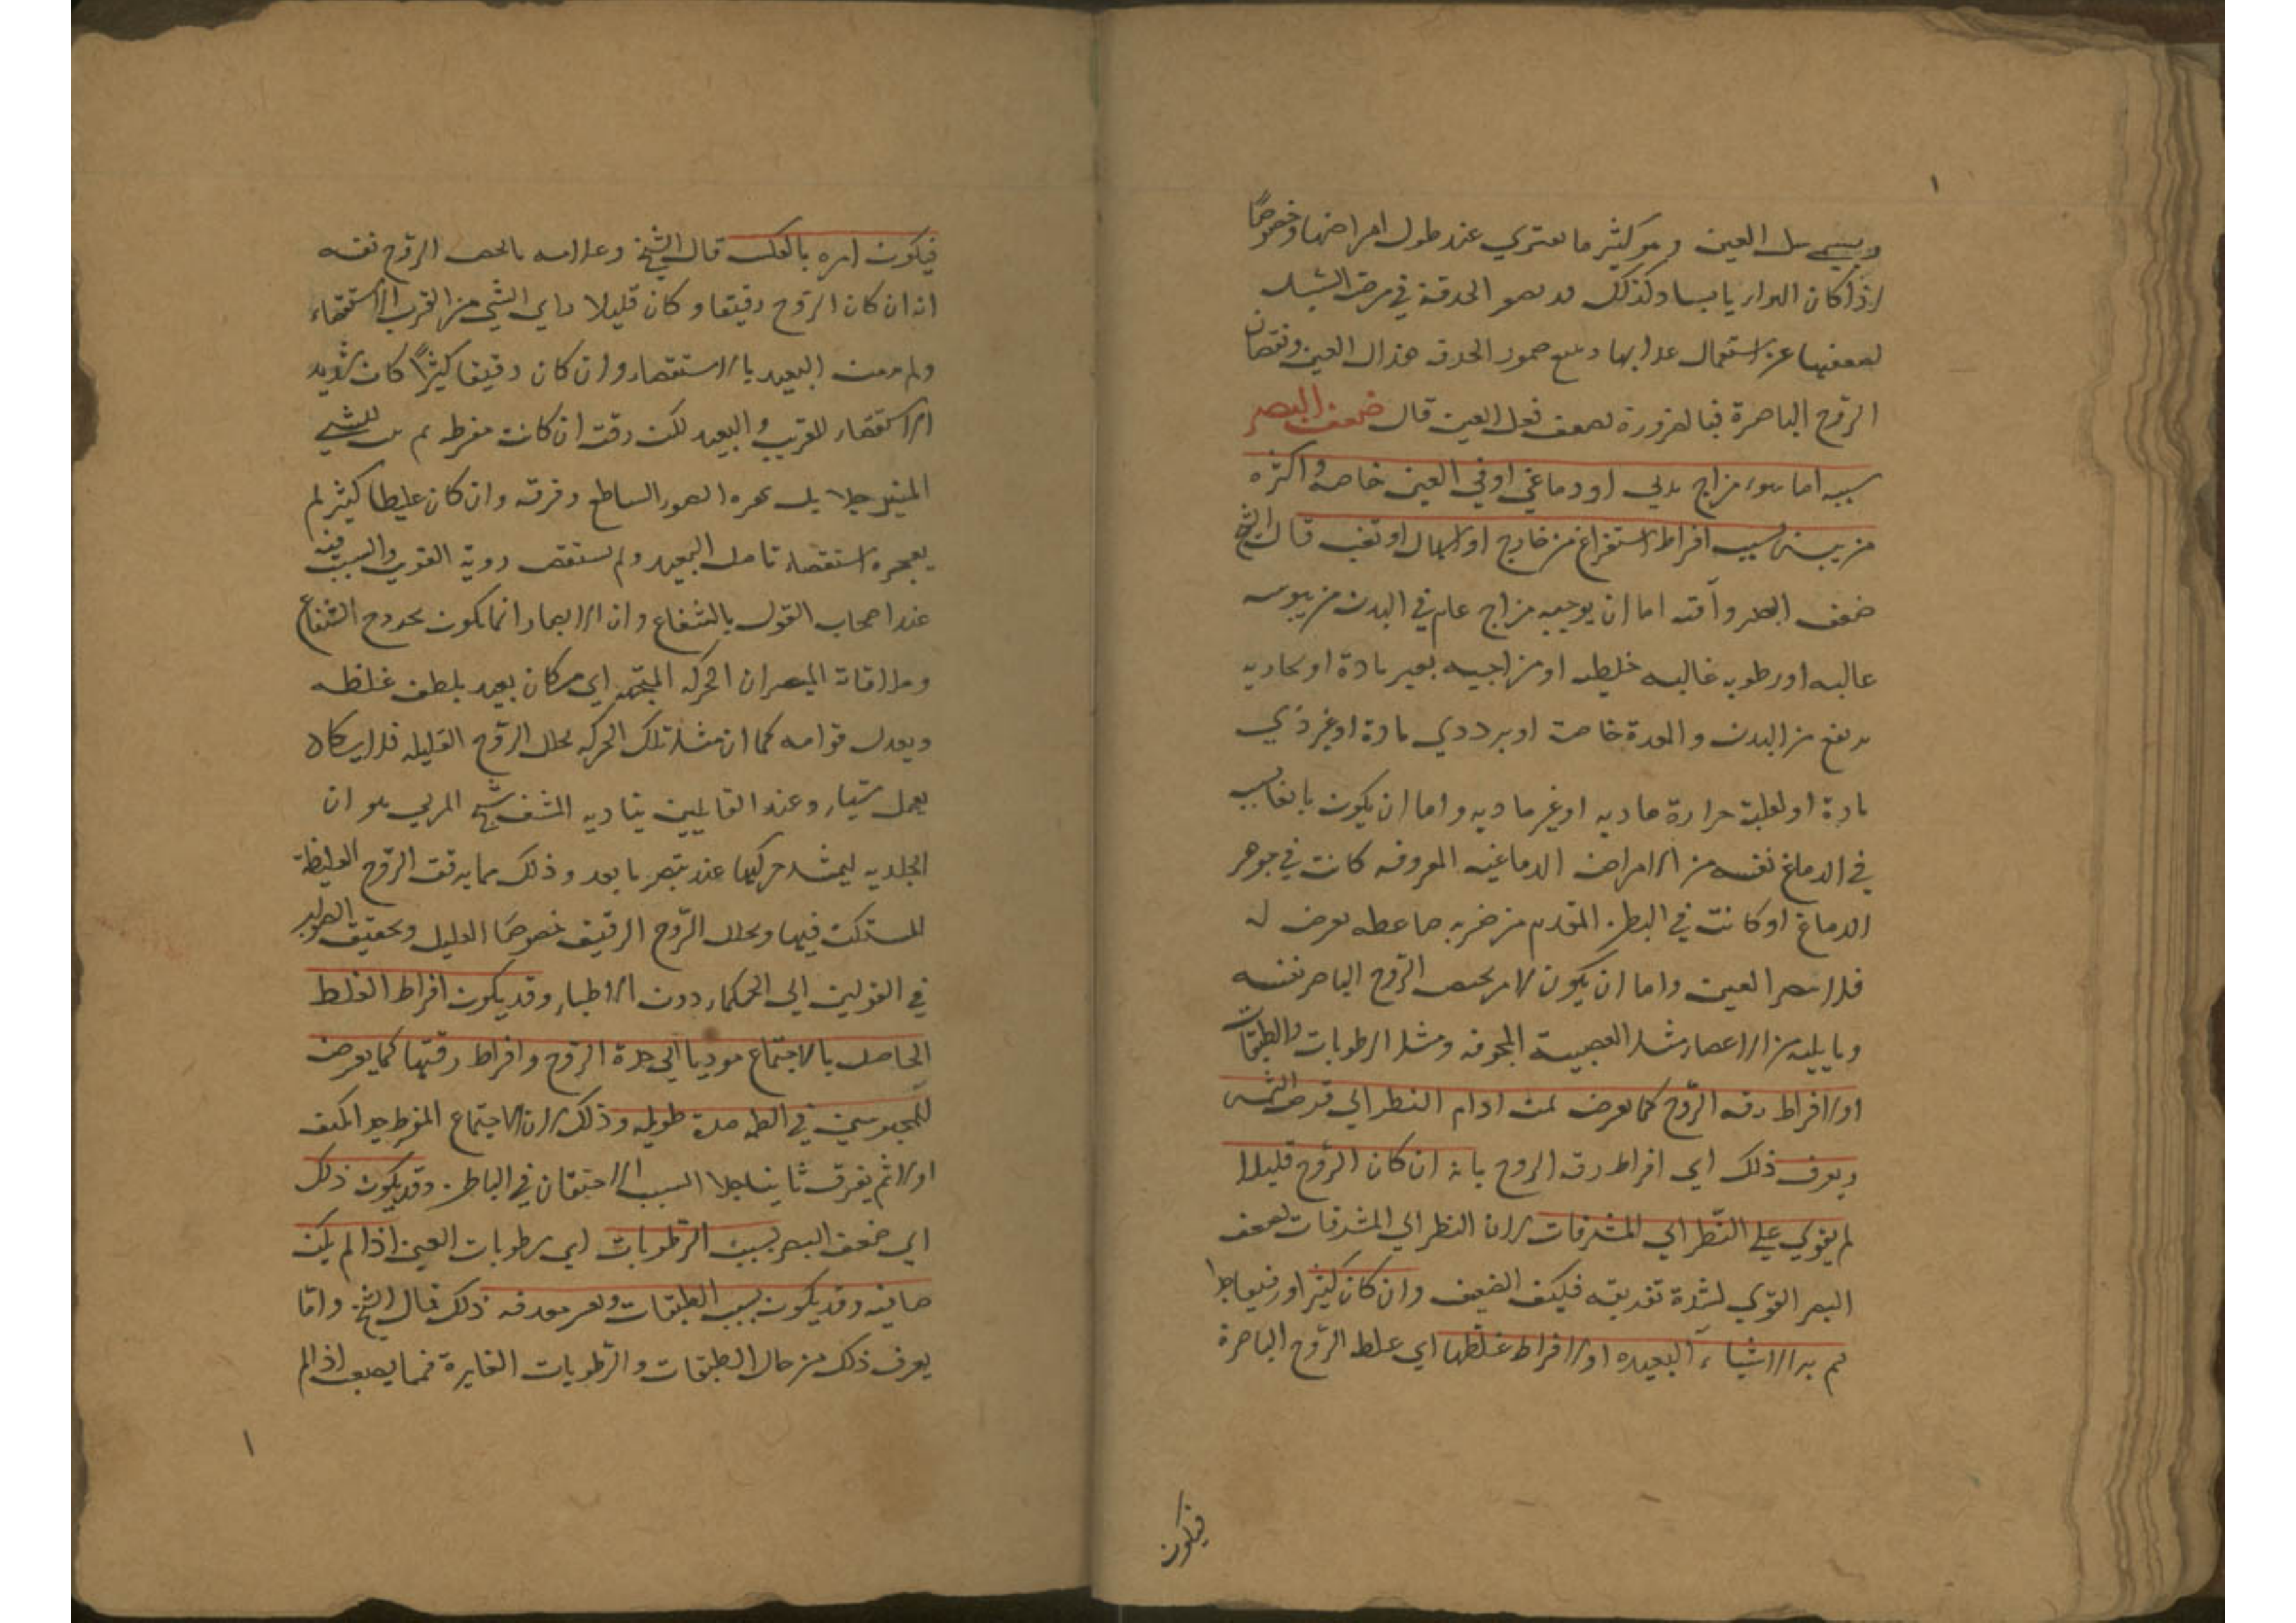 ويسمى سل العين وهو كثير ما يعتري عند طول امراضها وخصوصًا
اذا كان الهواء يابسا وكذلك قد تصغر الحدقة في مرض السل
لضعفها عن استعمال غذائها ومع ضمور الحدقة هزال العين ونقصان
الروح الباصرة فبالضرورة يضعف فعل العين قال ضعف البصر
سببه اما سوء مزاج بدني او دماغي او في العين خاصة واكثره
من يبس بسبب افراط استفراغ من خارج او اسهال او تعب قال الشيخ
ضعف البصر وآفته اما ان يوجبه مزاج عام في البدن من يبوسه
غالبه او رطوبه غالبه خليطه او مزاجيه بغير مادة او بخاريه
ترتفع من البدن والمعدة خاصة او برد ذي مادة او غير ذي
مادة او لغلبة حرارة ماديه او غير ماديه واما ان يكون تابعا لسبب
في الدماغ نفسه من الامراض الدماغيه المعروفه كانت في جوهر
الدماغ او كانت في البطن المقدم من ضربه ضاغطه يعرض له
فلا تبصر العين واما ان يكون لامر يختص الروح الباصر نفسه
وما يليه من الاعضاء مثل العصبية المجوفه ومثل الرطوبات والطبقات
او لافراط رقه الروح كما يعرض لمن ادام النظر الى قرص الشمس
ويعرف ذلك اي افراط رقه الروح بانه ان كان الروح قليلا
لم يقوي على النظر الى المشرقات لان النظر الى المشرقات يضعف
البصر القوي لشدة تفريقه فكيف الضعيف وان كان كثيرا
لم ير الاشياء البعيده او لافراط غلظها اي غلظ الروح الباصرة
فيكون
فيكون امره بالعكس قال الشيخ وعلامه ما يخص الروح نفسه
انه ان كان الروح رقيقا وكان قليلا راي الشي من القرب بالاستقصاء
ولم ير من البعيد بالاستقصاء وان كان رقيقا كثيرًا كان شديد
الاستقصاء للقريب والبعيد لكن رقته ان كانت مفرطه لم يثبت للشي
المنير جدا بل يبهره الضوء الساطع وفرقه وان كان غليظا كثير لم
يعجزه استقصاء تامل البعيد ولم يستقص روية القريب والسبب فيه
عند اصحاب القول بالشعاع وان الابصار انما يكون بخروج الشعاع
وملاقاته المبصر ان الحركه المتجهة الى مكان بعيد يلطف غلظه
ويعدل قوامه كما ان مثل تلك الحركه يحلل الروح القليله فلا يكاد
يعمل شيئا وعند القائلين بتاديه المشف شبح المرئي هو ان
الجلديه ليشتد حركتها عند تبصر ما بعد وذلك مما يرقق الروح الغليظة
المستكن فيها ويحلل الروح الرقيق خصوصًا القليل وتحقيق الصواب
في القولين الى الحكماء دون الاطباء وقد يكون افراط الغلظ
الحاصل بالاجتماع موديا الى حدة الروح وافراط رقتها كما يعرض
للمحبوسين في الظلمه مدة طويله وذلك لان الاجتماع المفرط جدا يكثف
اولا ثم يفرق ثانيا جلا السبب الاحتقان في الباطن وقد يكون ذلك
اي ضعف البصر بسبب الرطوبات اي رطوبات العين اذا لم يكن
صافيه وقد يكون بسبب الطبقات ويعسر معرفه ذلك قال الشيخ واما
يعرف ذلك من حال الطبقات والرطوبات الغايرة فمما يصعب اذا لم